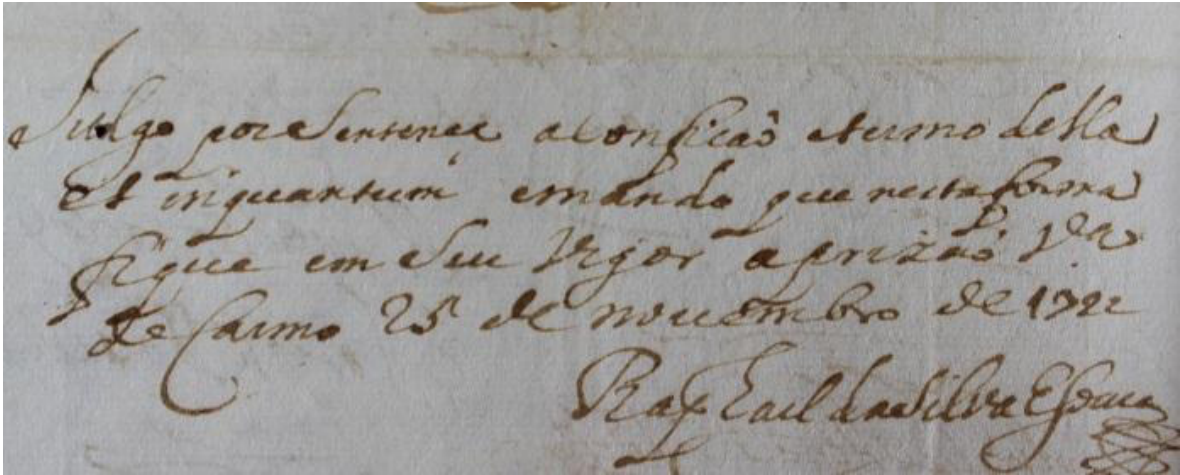 Julgo por Sentença a Confição etermo della
et inquantum emando que nesta forma
fique em Seu Vigor a prizaõ Vª
de Carmo 25 de nouembro de 1722
Raphael da Silva